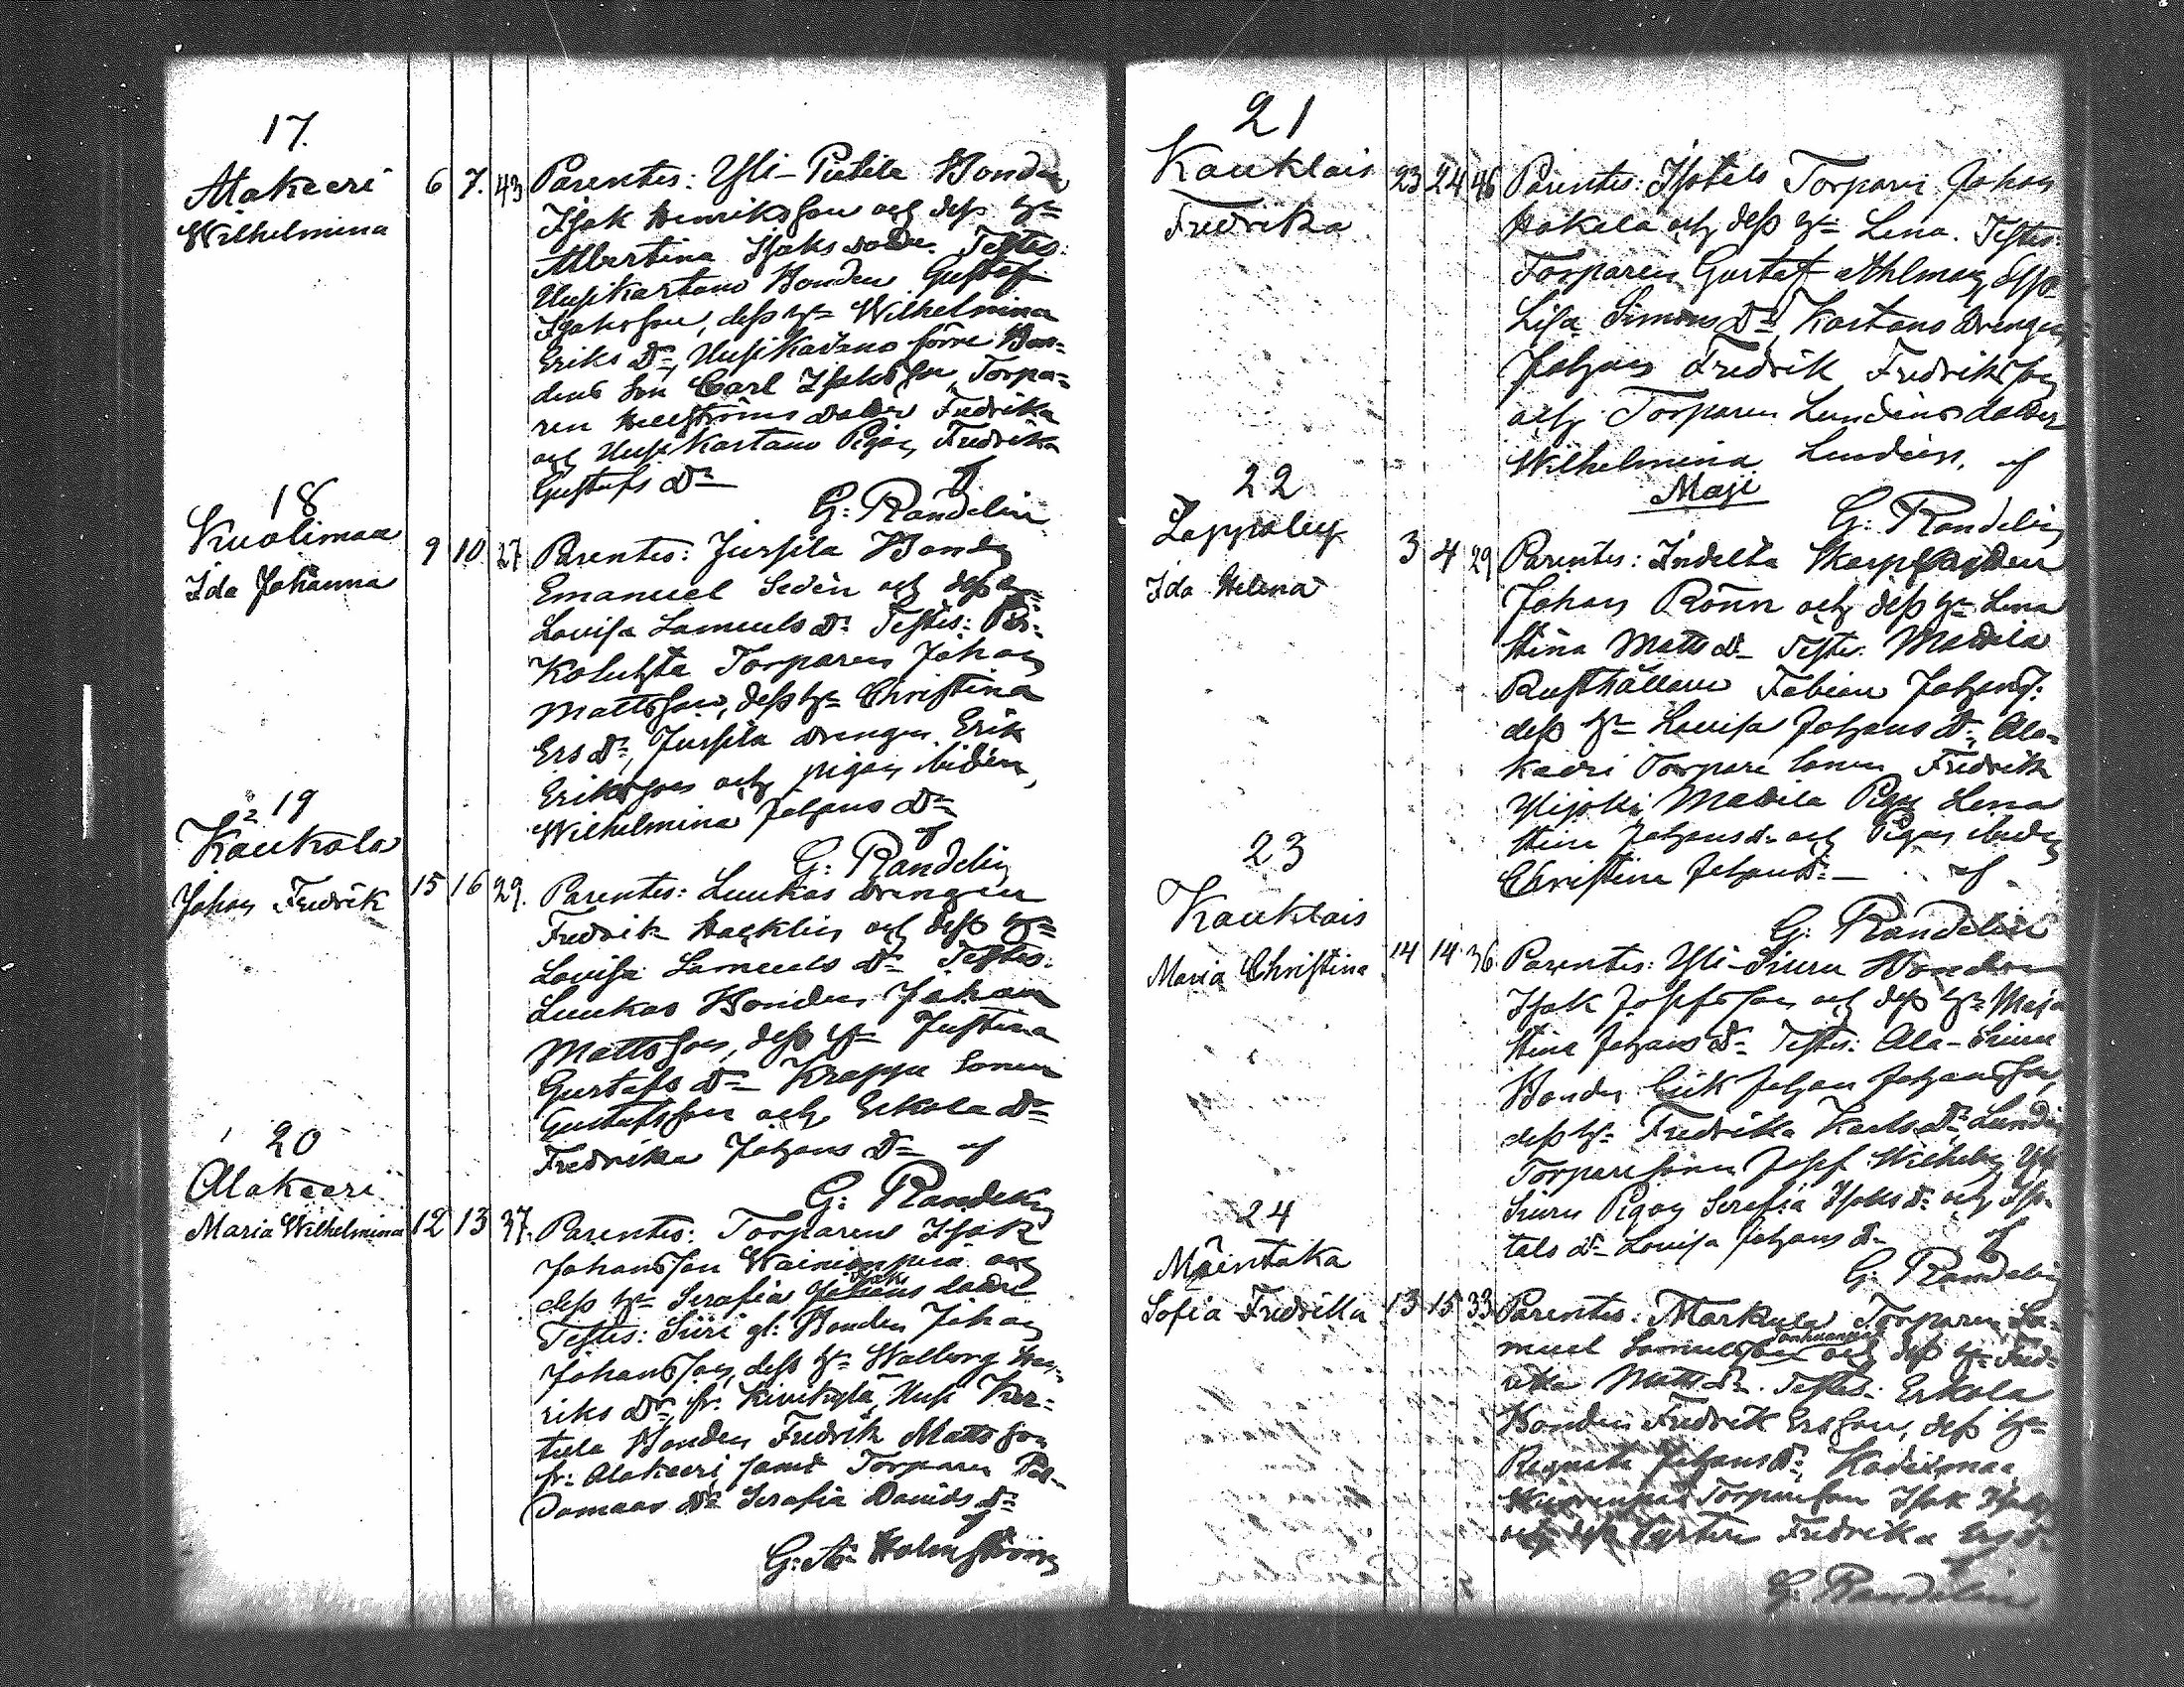 17.
Alakeeri
Wilhelmina
6 7. 43 Parentes: Yli-Pietilä Bonden
Isak Henriksson och dess h:u
Albertina Isaks doter. Testes:
Uusikartano Bonden Gustaf
Isaksson, dess h:u Wilhelmina
Eriks Dr, Uusikartano förre Bon=
dens Son Carl Isaksson, Torpa=
ren Hellströms doter Fredrika
och Uusikartano Pigan Fredrika
Gustafs Dr af
G: Randelin
18
Kuolimaa
Ida Johanna
9 10 27 Parentes: Jussila Bonden
Emanuel Sedén och dess h:u
Lovisa Samuels Dr Testes:
Torparen Johan
Mattsson, dess h:u Christina
Ers Dr, Jussila drengen Erik
Eriksson och pigan ibidem,
Wilhelmina Johans Dr
af
G: Randelin
19
Kaukola
Johan Fredrik
15 16 29. Parentes: Luukas drengen
Fredrik Hacklin och dess h:u
Lovisa Samuels Dr Testes:
Luukas Bonden Johan
Mattsson, dess h:u Justina
Gustafs Dr Krappe Sonen
Gustafsson och Erkola Dr
Fredrika Johans Dr af
G: Randelin
20
Alakeeri
Maria Wilhelmina
12 13 37. Parentes: Torparen Isak
Johansson Wainionpää och
dess h:u Serafia Isaks doter
Testes: Siiri gl: Bonden Johan
Johansson, dess h:u Walborg Hen=
riks Dr, fr. Kivikylä, Uusi
Bonden Fredrik Mattsson
fr: Alakeeri samt Torparen
Dr Serafia Davids Dr
af
G: A: Holmström
21
Kauklais
Fredrika
23 24 46 Parentes: Isotalo Torparen Johan
Hakala och dess h:u Lena. Testes:
Torparen Gustaf Ahlman, dess h:u
Lisa Simons Dr, Kartano Drengen
Johan Fredrik Fredriksson
och Torparen Lundens doter
Wilhelmina Lunden. af
Maji
G: Randelin
22
Lappi
Ida Helena
3 4 29 Parentes: Indelta Skarpskytten
Johan Rönn och dess h:u Lena
Stina Matts dr Testes: Mattila
Rusthållare Fabian Johanss:
dess h:u Lovisa Johans Dr, Ala=
keeri Torpare Sonen Fredrik
Ylijoki, Mattila Pigan Lena
Stina Johans dr och Pigan ibidem
Christina Johans Dr af
G: Randelin
23
Kauklais
Maria Christina
14 14 36 Parentes: Yli-Siuru Bonden
Isak Josefsson och dess h:u Maja
Stina Johans Dr Testes: Ala-Siuru
Bonden Erik Johan Johansson,
dess h:u Fredrika Karls Dr, Lunden
Torpare sonen Josef Wilhelm, Yli
Siuru Pigan Serafia Isaks dr och Iso=
talo dr Lovisa Johans dr af
G: Randelin
24
Mäentaka
Sofia Fredrika
13 15 33 Parentes: Markula Torparen Sa=
muel Samuelsson och dess h:u Fred=
rika Matts Dr. Testes: Erkola
Bonden Fredrik Ersson, dess h:u
Johans Dr,
Torparesonen Isak
och dess Syster Fredrika Ers Dr
af
G: Randelin